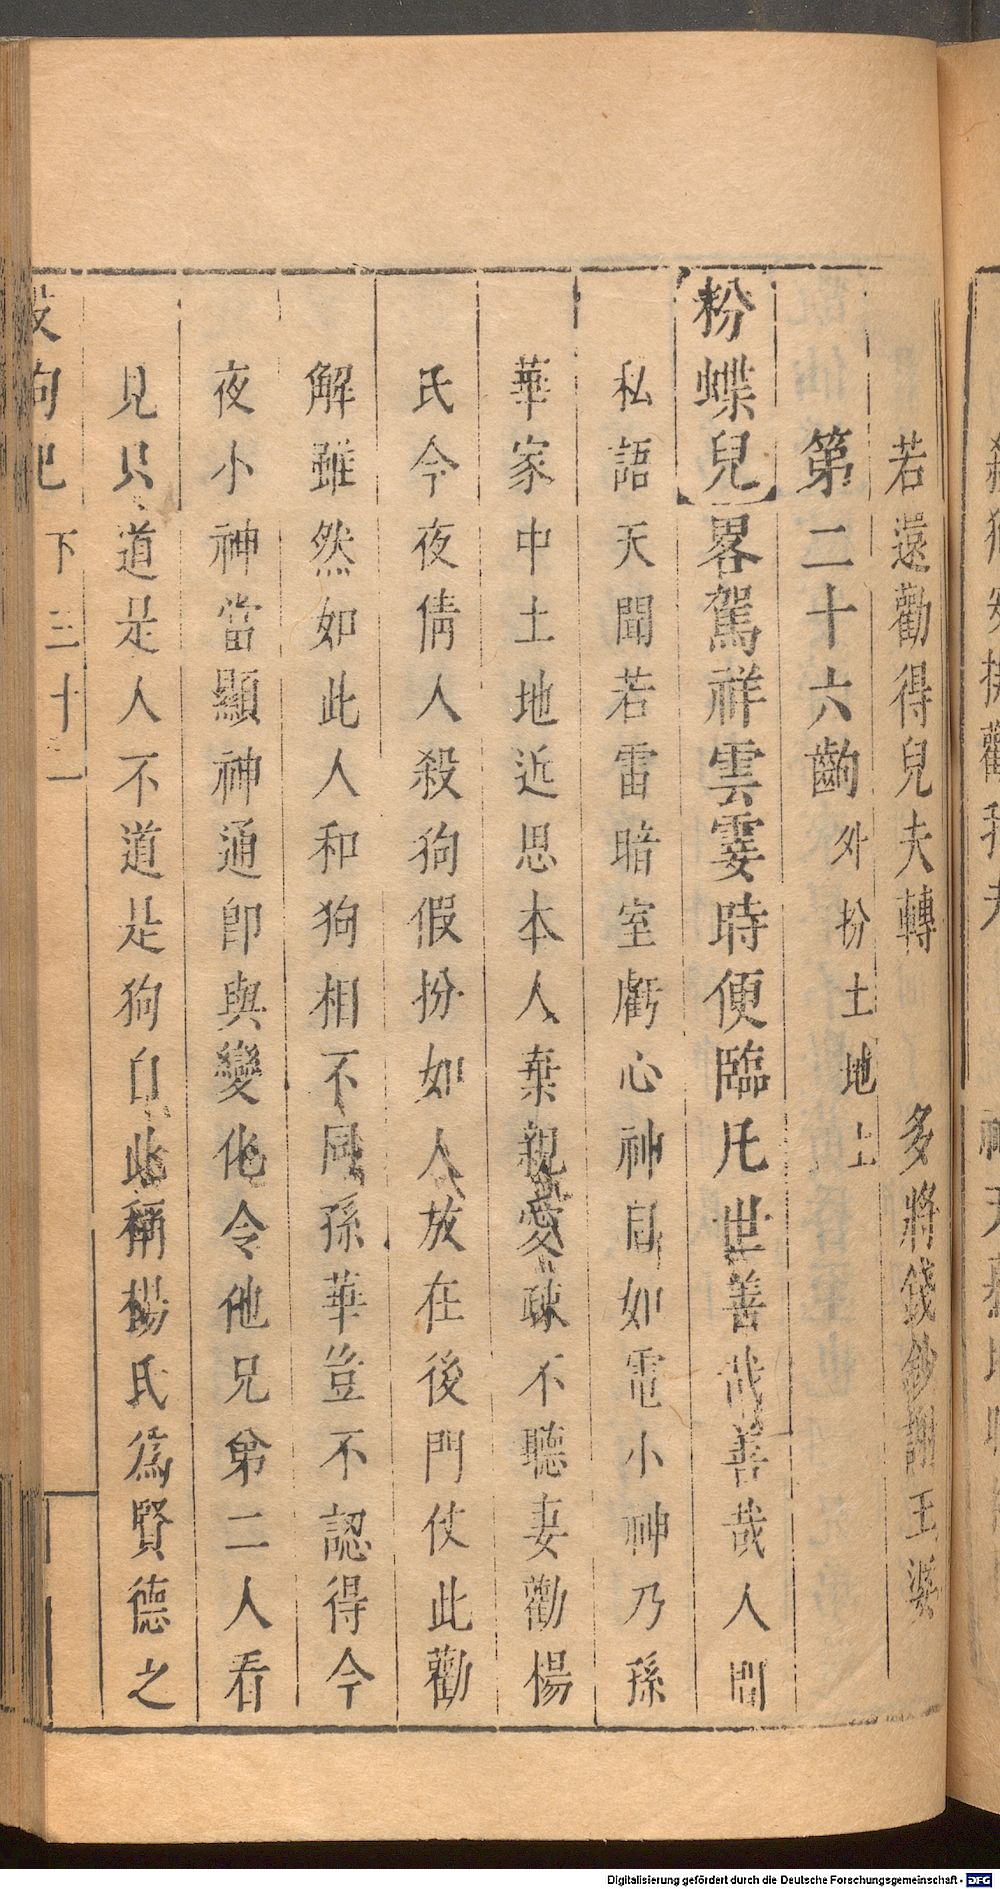 若還勸得兒夫轉　多將錢鈔謝王婆
第二十六齣　外扮土地上
粉蝶兒　畧駕祥雲霎時便臨凡世善哉善哉人間
私語天聞若雷暗室虧心神目如電小神乃孫
華家中土地近思本人棄親愛疎不聽妻勸楊
氏今夜倩人殺狗假扮如人放在後門仗此勸
解雖然如此人和狗相不同孫華豈不認得今
夜小神當顯神通即與變化令他兄弟二人看
見只道是人不道是狗自此稱楊氏爲賢德之
殺狗記　下　三十一
Digitalisierung gefördert durch die Deutsche Forschungsgemeinschaft - DFG